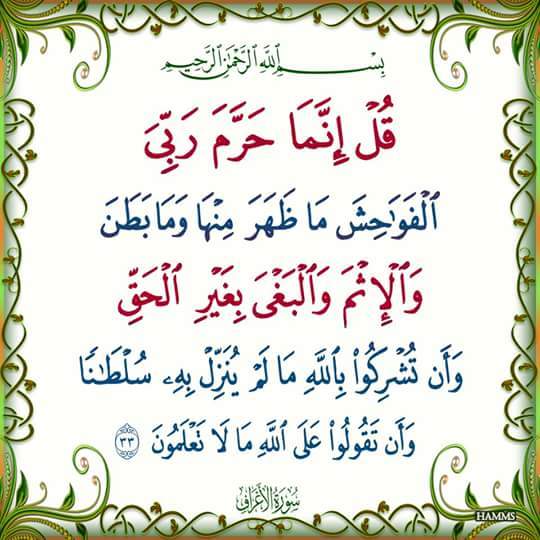 بِسْمِ ٱللَّهِ ٱلرَّحْمَٰنِ ٱلرَّحِيمِ
قُلْ إِنَّمَا حَرَّمَ رَبِّىَ
ٱلْفَوَٰحِشَ مَا ظَهَرَ مِنْهَا وَمَا بَطَنَ
وَٱلْإِثْمَ وَٱلْبَغْىَ بِغَيْرِ ٱلْحَقِّ
وَأَن تُشْرِكُوا۟ بِٱللَّهِ مَا لَمْ يُنَزِّلْ بِهِۦ سُلْطَٰنًا
وَأَن تَقُولُوا۟ عَلَى ٱللَّهِ مَا لَا تَعْلَمُونَ ٣٣
سُورَةُ الْأَعْرَافِ
HAMMS